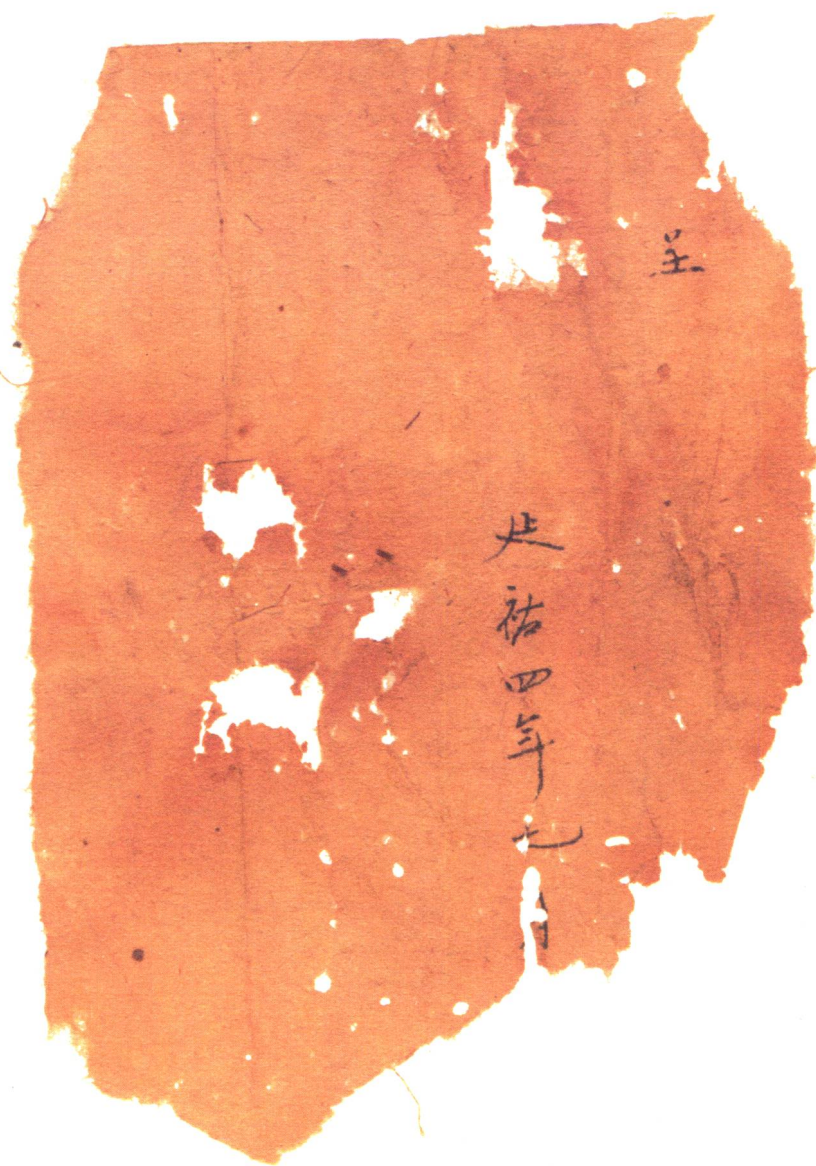 呈
延祐四年七月